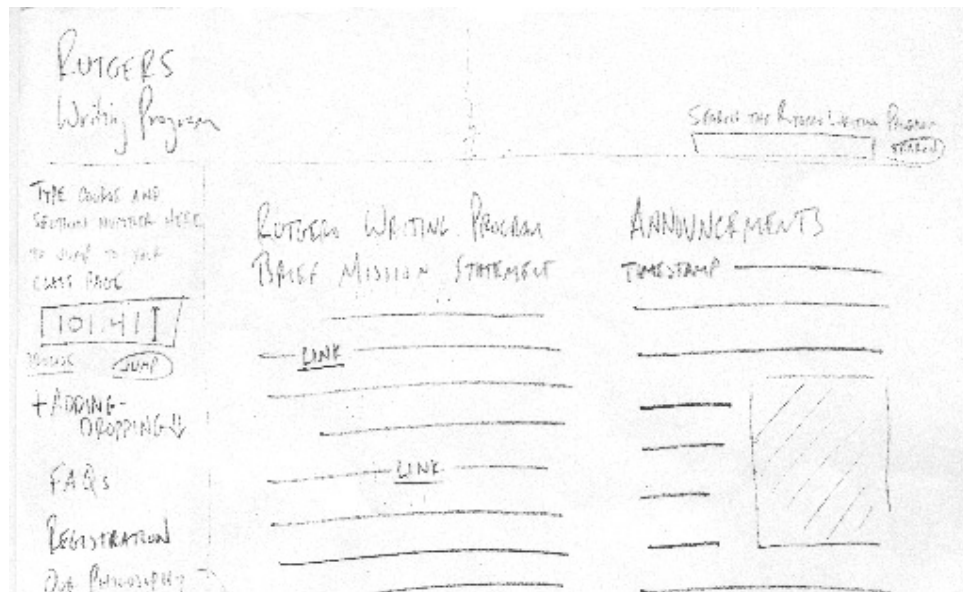 RUTGERS
Writing Program
SEARCH THE RUTGERS WRITING PROGRAM
SEARCH
TYPE COURSE AND
SECTION NUMBER HERE
TO JUMP TO YOUR
CLASS PAGE
101:41
BROWSE JUMP
+ADDING-
DROPPING
FAQs
REGISTRATION
OUR PHILOSOPHY
RUTGERS WRITING PROGRAM
BRIEF MISSION STATEMENT
LINK
LINK
ANNOUNCEMENTS
TIMESTAMP